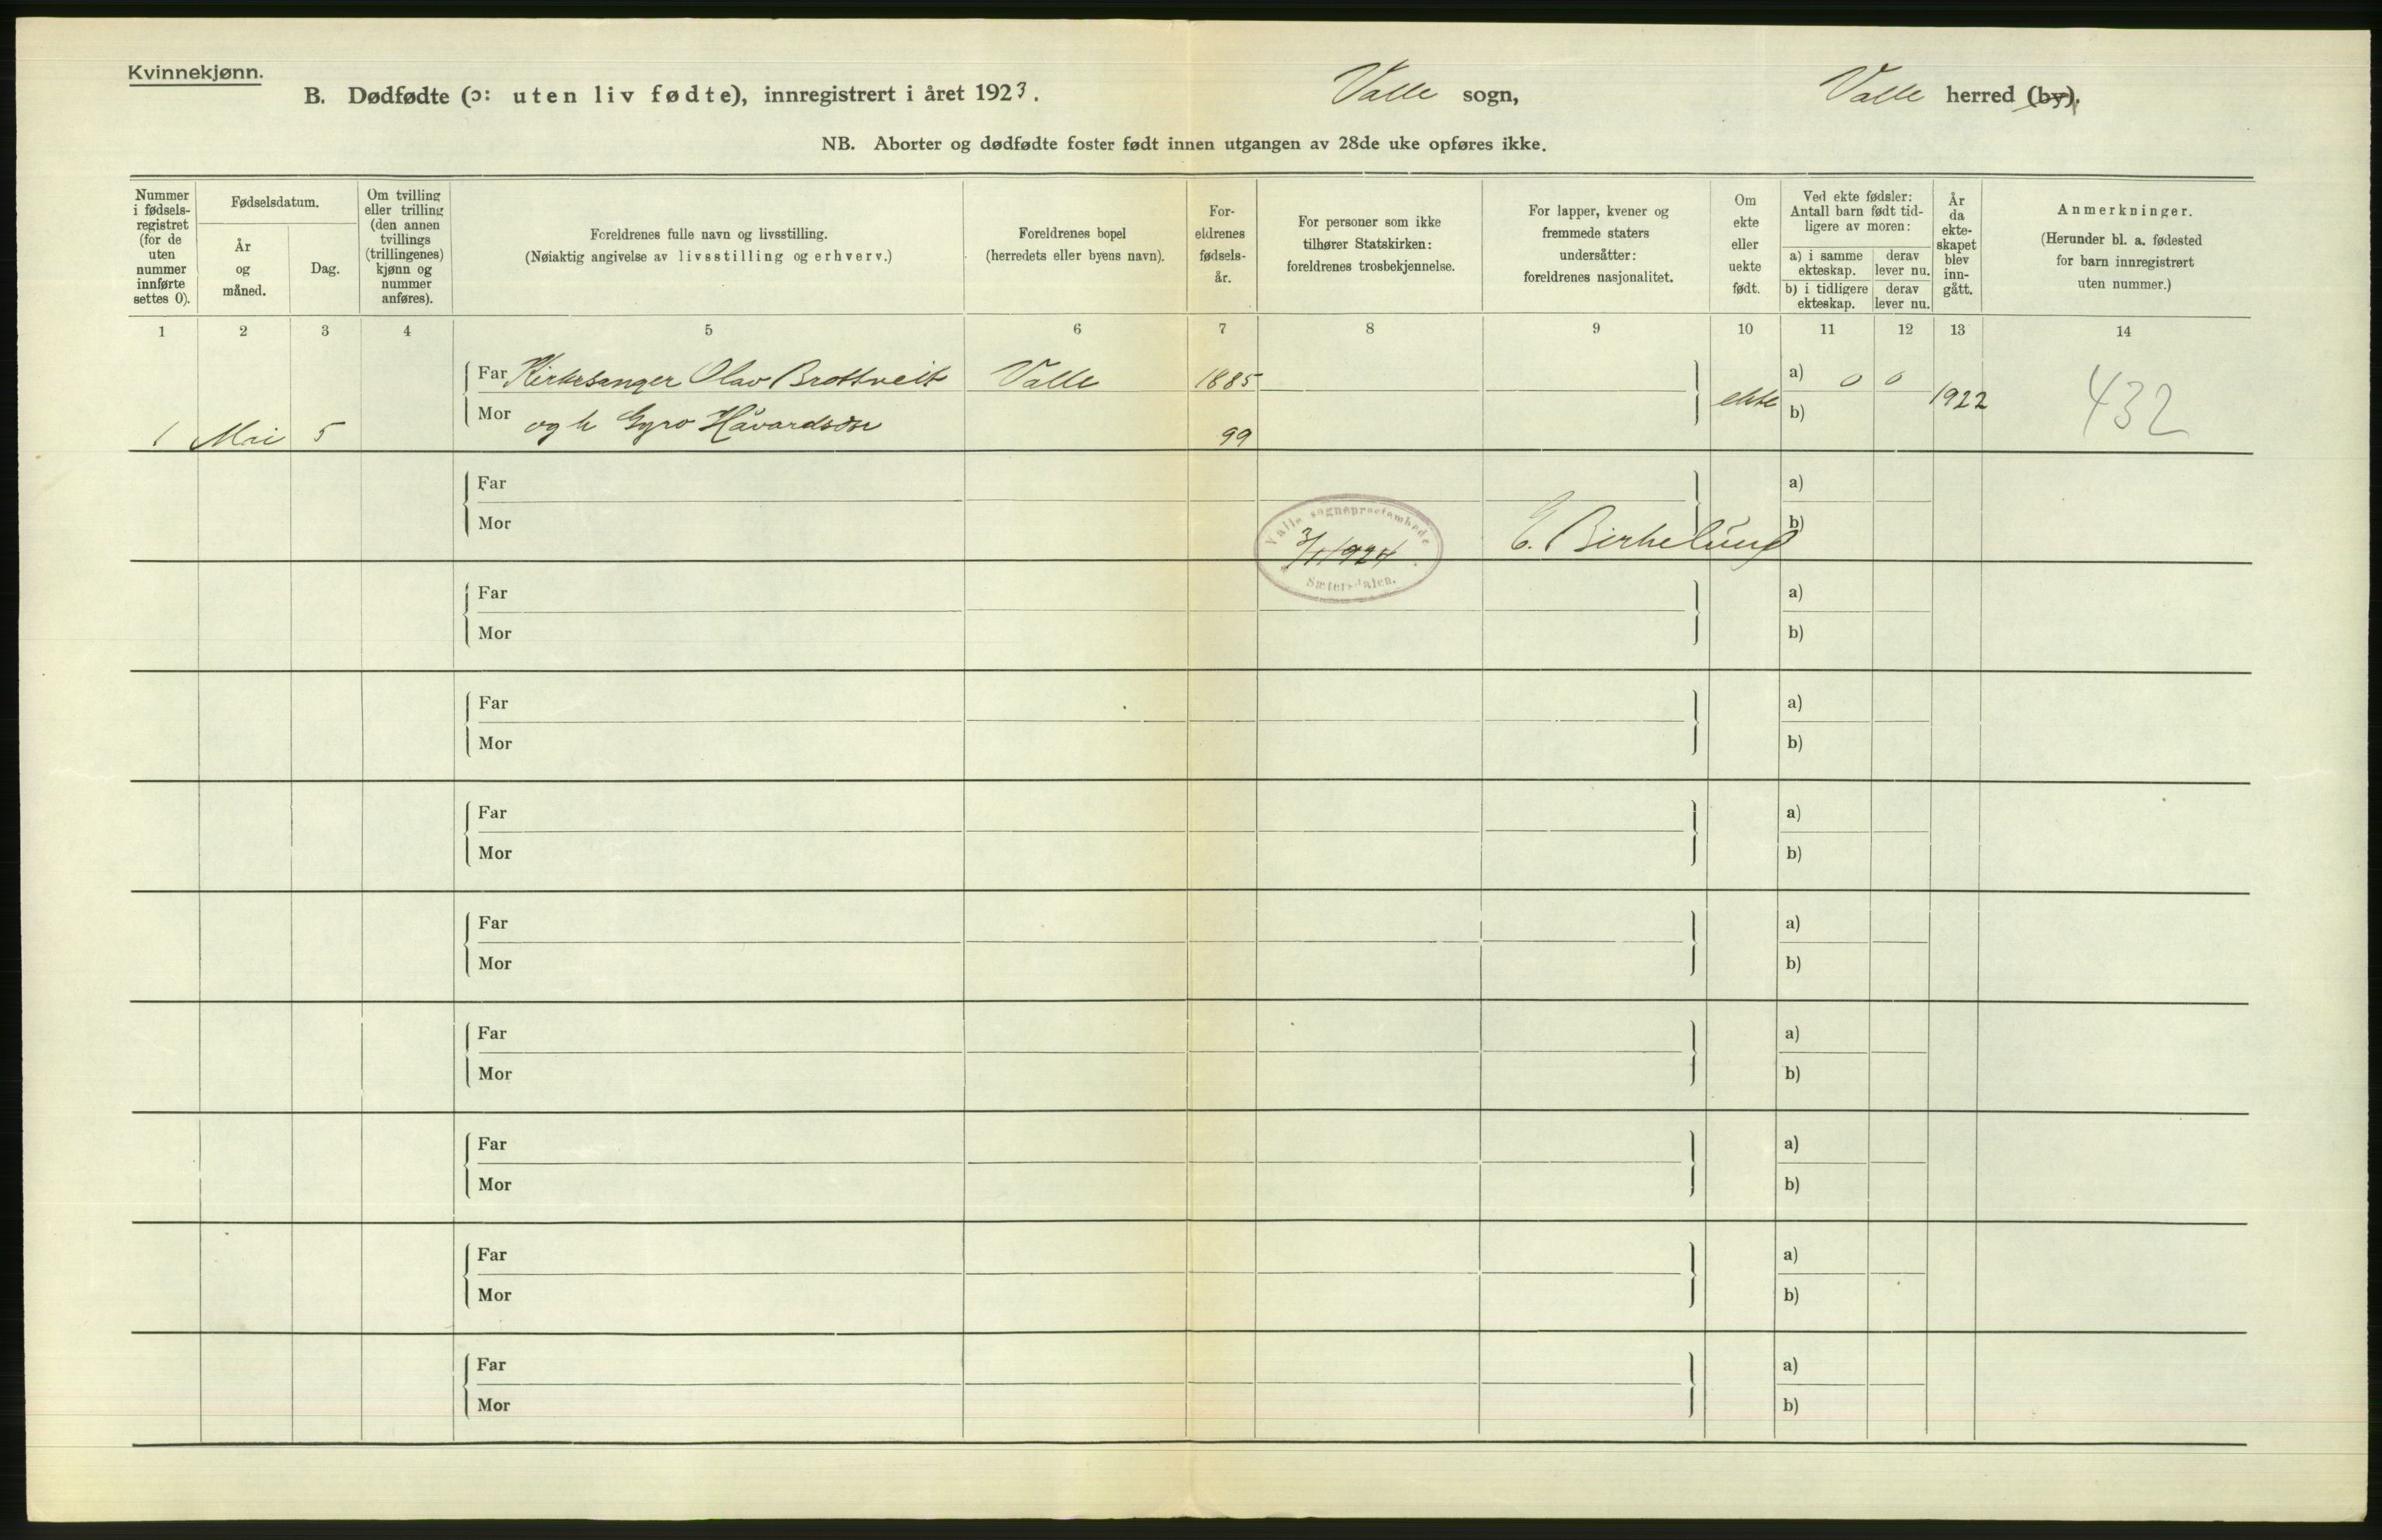 Kvinnekjønn.
B. Dødfødte (ɔ: uten liv fødte), innregistrert i året 1923. Valle sogn, Valle herred (by).
NB. Aborter og dødfødte foster født innen utgangen av 28de uke opføres ikke.
Nummer i fødsels-registret (for de uten nummer innførte settes 0).
Fødselsdatum.
År og måned.
Dag.
Om tvilling eller trilling (den annen tvillings (trillingenes) kjønn og nummer anføres).
Foreldrenes fulle navn og livsstilling.
(Nøiaktig angivelse av livsstilling og erhverv.)
Foreldrenes bopel
(herredets eller byens navn).
For-eldrenes fødsels-år.
For personer som ikke tilhører Statskirken: foreldrenes trosbekjennelse.
For lapper, kvener og fremmede staters undersåtter: foreldrenes nasjonalitet.
Om ekte eller uekte født.
Ved ekte fødsler: Antall barn født tid-ligere av moren:
a) i samme ekteskap. derav lever nu.
b) i tidligere ekteskap. derav lever nu.
År da ekte-skapet blev inn-gått.
Anmerkninger.
(Herunder bl. a. fødested for barn innregistrert uten nummer.)
1 2 3 4 5 6 7 8 9 10 11 12 13 14
Far Kirkesanger Olav Brottveit Valle 1885 a) 0 0
ekte 1922 432
Mor og h Gyro Håvardsdtr 99 b)
1 Mai 5
Far a)
Mor b)
Valle sogneprestembede
3/1 1924
Sætersdalen.
E. Birkelund
Far a)
Mor b)
Far a)
Mor b)
Far a)
Mor b)
Far a)
Mor b)
Far a)
Mor b)
Far a)
Mor b)
Far a)
Mor b)
Far a)
Mor b)